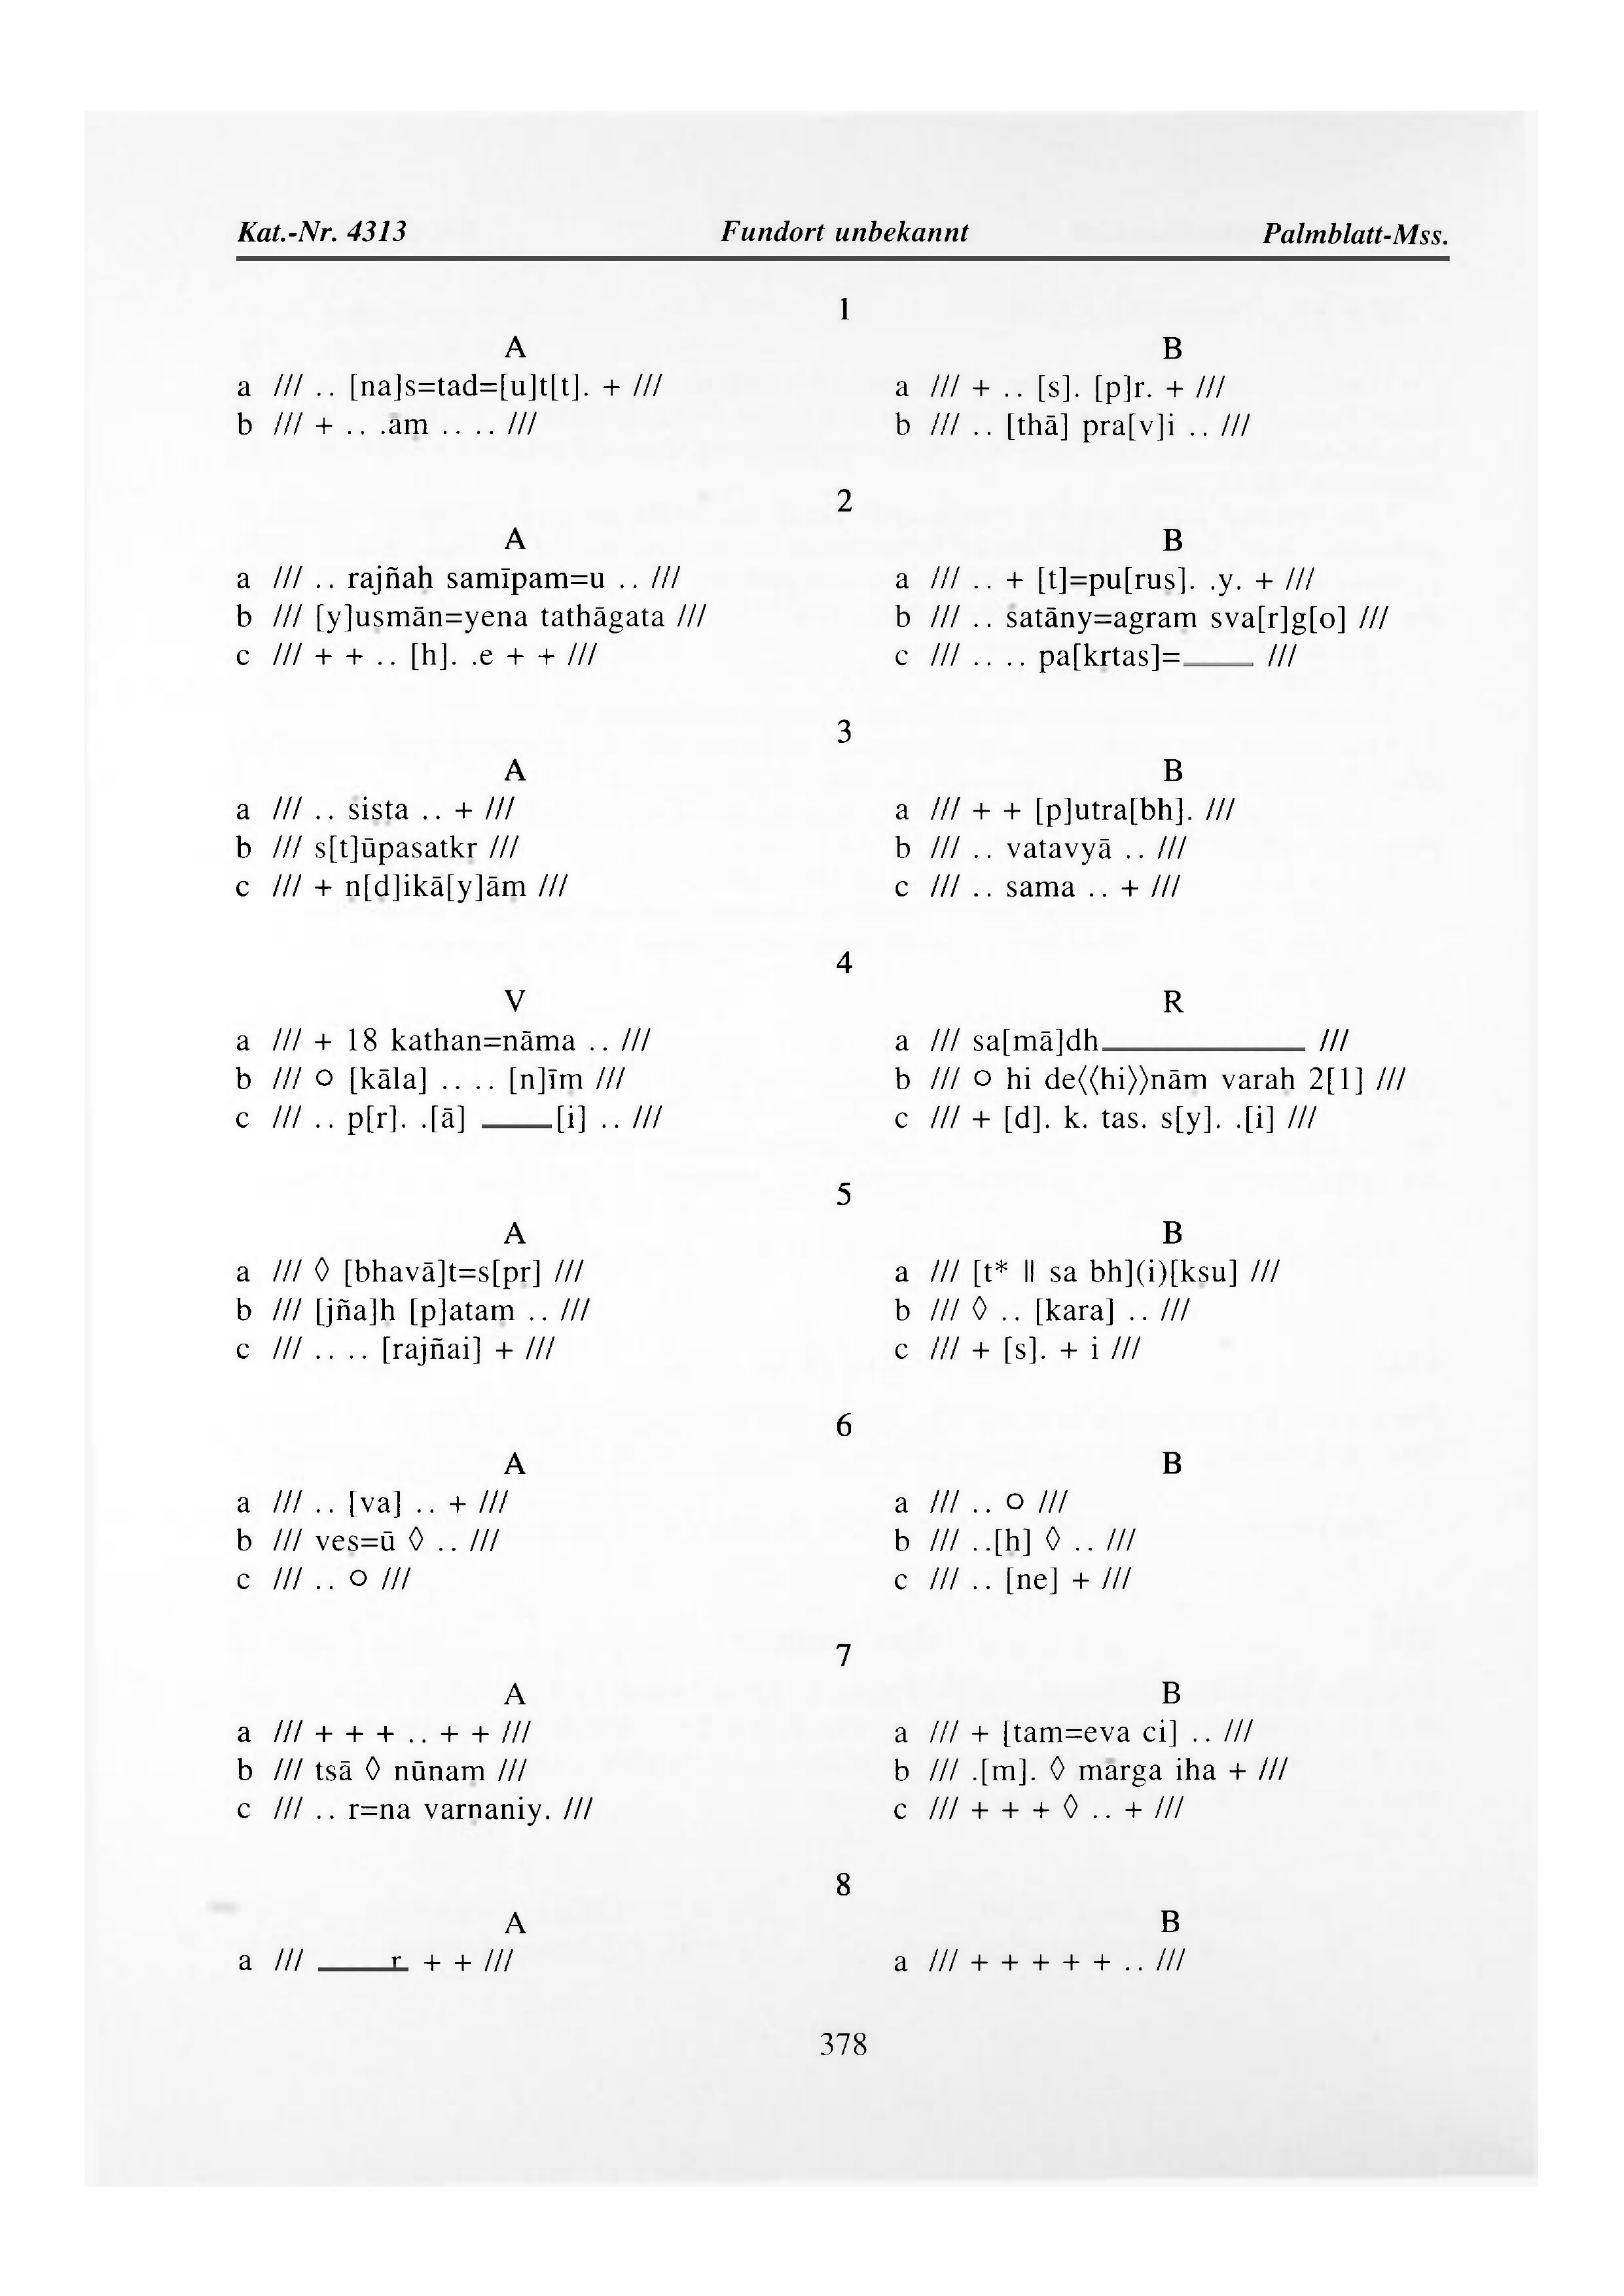 Kat.-Nr. 4313 Fundort unbekannt Palmblatt-Mss.
1
A B
a /// .. [na]s=tad=[u]t[t]. + ///
b /// + .. .āṃ .. .. ///
a /// + .. [s]. [p]r. + ///
b /// .. [thā] pra[v]i .. ///
2
A B
a /// .. rajñaḥ samīpam=u .. ///
b /// [y]uṣmān=yena tathāgata ///
c /// + + .. [h]. .e + + ///
a /// .. + [t]=pu[ruṣ]. .y. + ///
b /// .. śatāny=agraṃ sva[r]g[o] ///
c /// .. .. pa[kṛtas]= ///
3
A B
a /// .. śiṣṭa .. + ///
b /// s[t]ūpasatkṛ ///
c /// + ṇ[ḍ]ikā[y]āṃ ///
a /// + + [p]utra[bh]. ///
b /// .. vatavyā .. ///
c /// .. sama .. + ///
4
V R
a /// + 18 kathan=nāma .. ///
b /// ○ [kāla] .. .. [n]īm ///
c /// .. p[r]. .[ā] [i] .. ///
a /// sa[mā]dh ///
b /// ○ hi de⟨⟨hi⟩⟩nāṃ varaḥ 2[1] ///
c /// + [d]. k. tas. s[y]. .[i] ///
5
A B
a /// ◊ [bhavā]t=s[pṛ] ///
b /// [jña]ḥ [p]ataṃ .. ///
c /// .. .. [rajñai] + ///
a /// [t* ॥ sa bh](i)[kṣu] ///
b /// ◊ .. [kara] .. ///
c /// + [s]. + i ///
6
A B
a /// .. [va] .. + ///
b /// veṣ=ū ◊ .. ///
c /// .. ○ ///
a /// .. ○ ///
b /// ..[ḥ] ◊ .. ///
c /// .. [ne] + ///
7
A B
a /// + + + .. + + ///
b /// tsā ◊ nūnaṃ ///
c /// .. r=na varṇaniy. ///
a /// + [tam=eva ci] .. ///
b /// .[m]. ◊ mārga iha + ///
c /// + + + ◊ .. + ///
8
A B
a /// r + + ///
a /// + + + + + .. ///
378